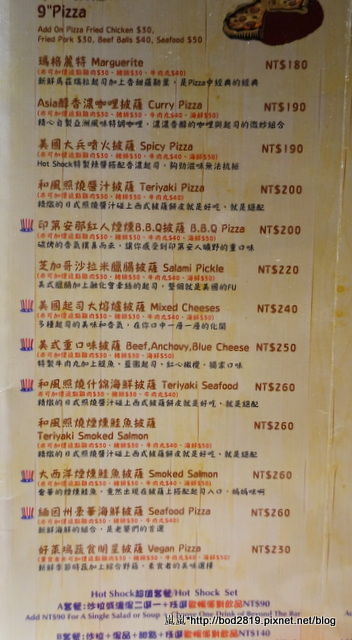 9"Pizza
Add On Pizza Fried Chicken $30,
Fried Pork $30, Beef Balls $40, Seafood $50
瑪格麗特 Marguerite NT$180
(亦可加價選點雞肉$30、豬排$30、牛肉丸$40)
新鮮馬茲瑞拉起司加上香甜羅勒葉，是Pizza中經典的經典
Asia醇香濃咖哩披薩 Curry Pizza NT$190
(亦可加價選點雞肉$30、豬排$30、牛肉丸$40、海鮮$50)
精心自製亞洲風味特調咖哩，濃濃香醇的咖哩與起司的微妙組合
美國大兵噴火披薩 Spicy Pizza NT$190
(亦可加價選點雞肉$30、豬排$30、牛肉丸$40、海鮮$50)
Hot Shock特製辣醬搭配香濃起司，夠勁滋味無法抗拒
和風照燒醬汁披薩 Teriyaki Pizza NT$200
(亦可加價選點雞肉$30、豬排$30、牛肉丸$40、海鮮$50)
精緻的日式照燒醬汁碰上西式披薩餅皮就是好吃、就是絕配
印第安那紅人煙燻B.B.Q披薩 B.B.Q Pizza NT$200
(亦可加價選點雞肉$30、豬排$30、牛肉丸$40、海鮮$50)
碳烤的香氣撲鼻而來，讓你感受到印第安人曠野的重口味
芝加哥沙拉米臘腸披薩 Salami Pickle NT$220
(亦可加價選點雞肉$30、豬排$30、牛肉丸$40、海鮮$50)
美式臘腸加上融化會牽絲的起司，整個就是美國的FU
美國起司大熔爐披薩 Mixed Cheeses NT$240
(亦可加價選點雞肉$30、豬排$30、牛肉丸$40、海鮮$50)
多種起司的美味和香氣，在你口中一層一層的化開
美式重口味披薩 Beef,Anchovy,Blue Cheese NT$250
(亦可加價選點雞肉$30、豬排$30、海鮮$50)
特製牛肉丸加上鯷魚，藍圍起司、紅心橄欖，獨家口味
和風照燒什錦海鮮披薩 Teriyaki Seafood NT$260
(亦可加價選點雞肉$30、豬排$30、牛肉丸$40)
精緻的日式照燒醬汁碰上西式披薩餅皮就是好吃、就是絕配
和風照燒煙燻鮭魚披薩
Teriyaki Smoked Salmon NT$260
(亦可加價選點雞肉$30、豬排$30、牛肉丸$40、海鮮$50)
精緻的日式照燒醬汁碰上西式披薩餅皮就是好吃、就是絕配
大西洋煙燻鮭魚披薩 Smoked Salmon NT$260
(亦可加價選點雞肉$30、豬排$30、牛肉丸$40、海鮮$50)
奢華的煙燻鮭魚，竟然出現在披薩上搭配起司入口
緬因州豪華海鮮披薩 Seafood Pizza NT$260
(亦可加價選點雞肉$30、豬排$30、牛肉丸$40)
新鮮海鮮的結合，是老饕們的首選
好萊塢蔬食明星披薩 Vegan Pizza NT$230
(亦可加價選點雞肉$30、豬排$30、牛肉丸$40、海鮮$50)
新鮮季節時蔬加上綜合野菇，素食者的美味選擇
Hot Shock超值套餐/Hot Shock Set
A套餐:沙拉或濃湯二選一+任選歐陸系列飲品NT$90
Add NT$90 For A Single Salad or Soup Choose One Drink of Beyond The Bar
B套餐:沙拉+濃湯+甜點+任選歐陸系列飲品NT$140
http://bod2819.pixnet.net/blog